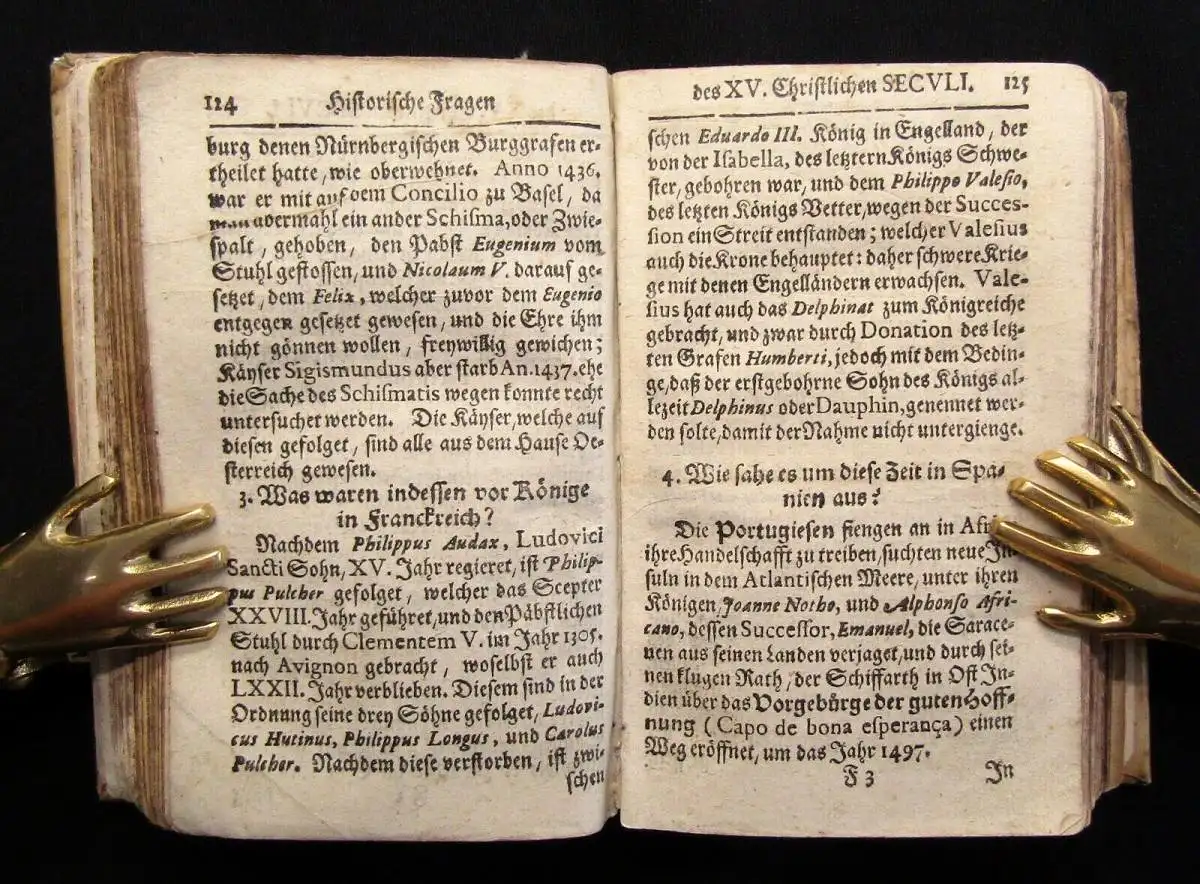 124 Historische Fragen
burg denen Nürnbergischen Burggrafen er-
theilet hatte, wie oberwehnet. Anno 1436.
war er mit auf dem Concilio zu Basel, da
man abermahl ein ander Schisma, oder Zwie-
spalt, gehoben, den Pabst Eugenium vom
Stuhl gestossen, und Nicolaum V. darauf ge-
setzet, dem Felix, welcher zuvor dem Eugenio
entgegen gesetzet gewesen, und die Ehre ihm
nicht gönnen wollen, freywillig gewichen;
Käyser Sigismundus aber starb An. 1437. ehe
die Sache des Schismatis wegen konnte recht
untersuchet werden. Die Käyser, welche auf
diesen gefolget, sind alle aus dem Hause Oe-
sterreich gewesen.
3. Was waren indessen vor Könige
in Franckreich?
Nachdem Philippus Audax, Ludovici
Sancti Sohn, XV. Jahr regieret, ist Philip-
pus Pulcher gefolget, welcher das Scepter
XXVIII. Jahr geführet, und den Päbstlichen
Stuhl durch Clementem V. im Jahr 1305.
nach Avignon gebracht, woselbst er auch
LXXII. Jahr verblieben. Diesem sind in der
Ordnung seine drey Söhne gefolget, Ludovi-
cus Hutinus, Philippus Longus, und Carolus
Pulcher. Nachdem diese verstorben, ist zwi-
schen
des XV. Christlichen SECULI. 125
schen Eduardo III. König in Engelland, der
von der Isabella, des letztern Königs Schwe-
ster, gebohren war, und dem Philippo Valesio,
des letzten Königs Vetter, wegen der Succes-
sion ein Streit entstanden; welcher Valesius
auch die Krone behauptet: daher schwere Krie-
ge mit denen Engelländern erwachsen. Vale-
sius hat auch das Delphinat zum Königreiche
gebracht, und zwar durch Donation des letz-
ten Grafen Humberti, jedoch mit dem Bedin-
ge, daß der erstgebohrne Sohn des Königs al-
lezeit Delphinus oder Dauphin, genennet wer-
den solte, damit der Nahme nicht untergienge.
4. Wie sahe es um diese Zeit in Spa-
nien aus?
Die Portugiesen fiengen an in
ihre Handelschafft zu treiben, suchten neue In-
suln in dem Atlantischen Meere, unter ihren
Königen, Joanne Notho, und Alphonso Afri-
cano, dessen Successor, Emanuel, die Sarace-
nen aus seinen Landen verjaget, und durch sei-
nen klugen Rath, der Schiffarth in Ost In-
dien über das Vorgebürge der guten Hoff-
nung (Capo de bona esperança) einen
Weg eröffnet, um das Jahr 1497.
F 3 In